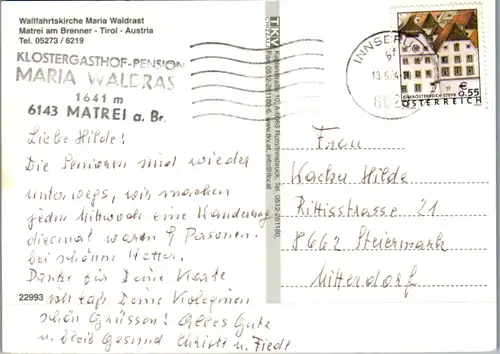 Wallfahrtskirche Maria Waldrast
Matrei am Brenner - Tirol - Austria
Tel. 05273 / 6219
KLOSTERGASTHOF-PENSION
MARIA WALDRAS
1641 m
6143 MATREI a. Br.
Liebe Hilde!
Die Senioren sind wieder
unterwegs, wir machen
jeden Mittwoch eine Wanderung
diesmal waren 9 Personen.
bei schönem Wetter.
Danke für Deine Karte
ich laß Deine Kolleginen
schön Grüssen! Alles Gute
u. bleib Gesund Christl u. Friedl
22993
TKV
INNSBRU
€ 0.55
OBERÖSTERREICH STEYR
ÖSTERREICH
Frau
Hilde
Rittisstrasse 21
8662 Steiermark
Mitterdorf